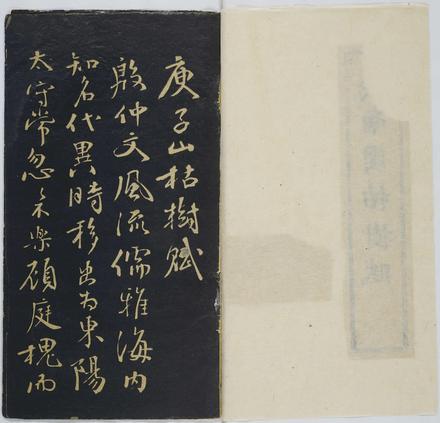 庾子山枯樹賦
殷仲文風流儒雅海内
知名代異時移出為東陽
太守常忽〻不樂顧庭槐而